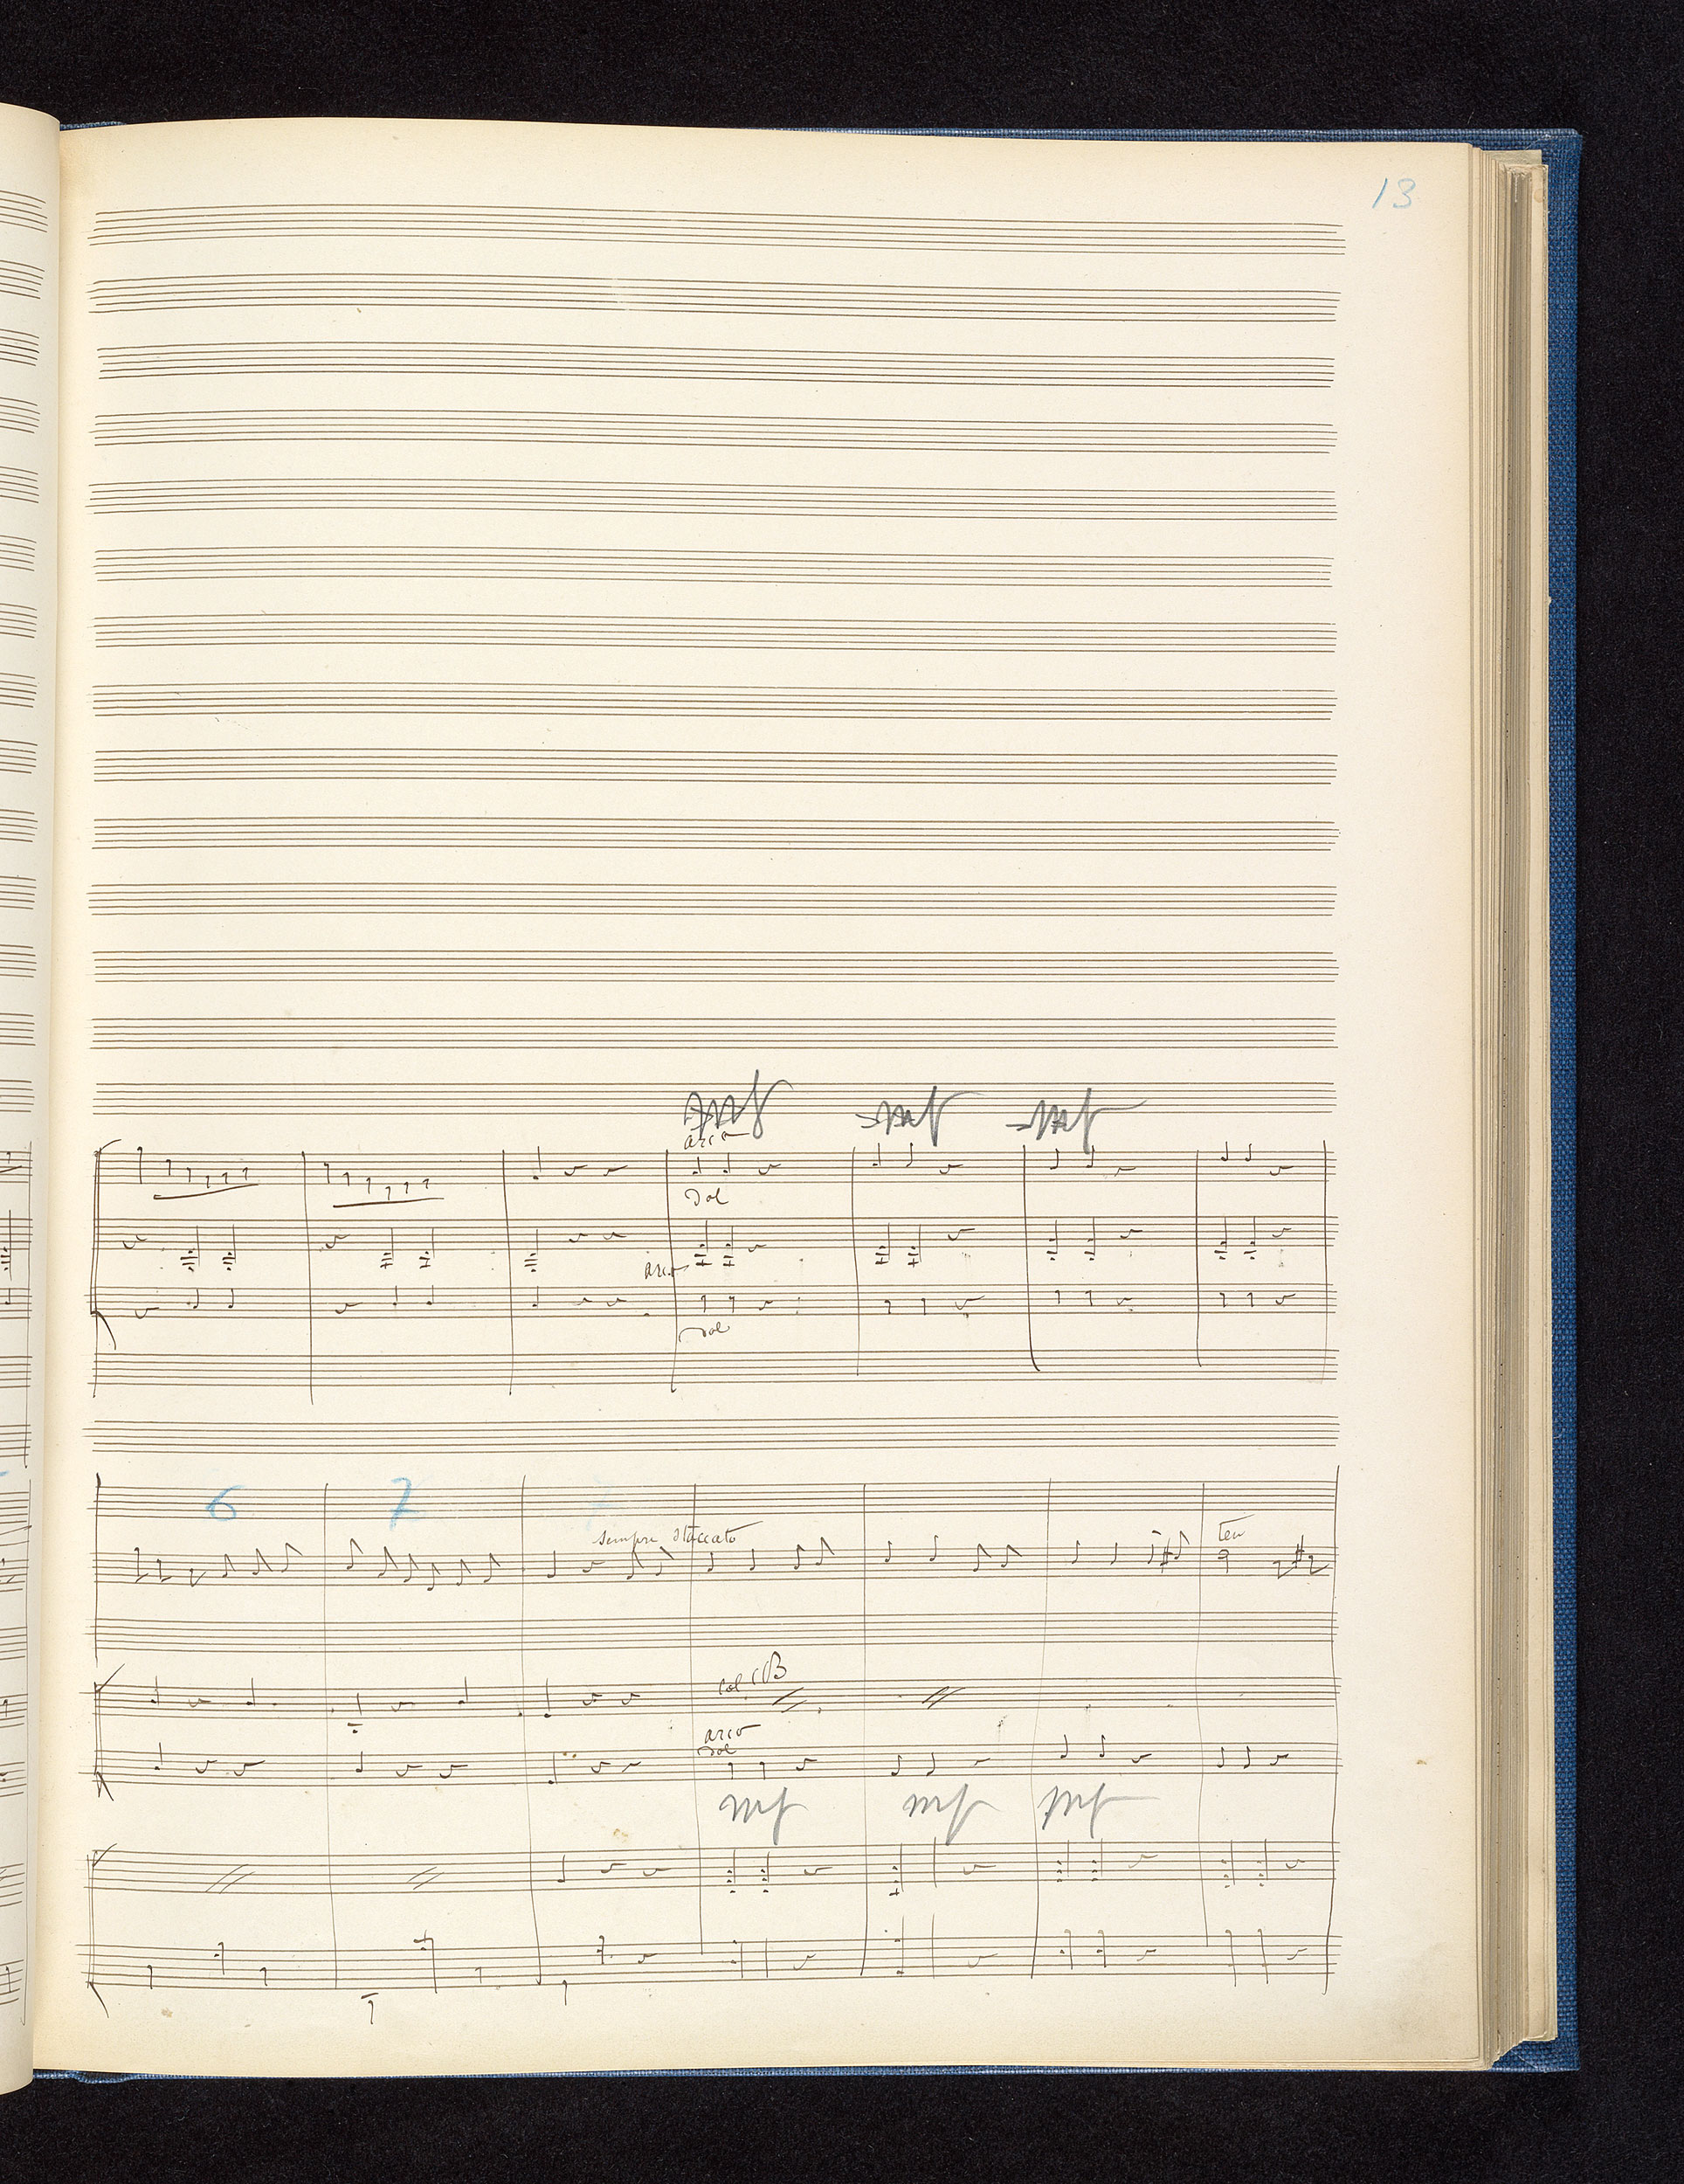 13
mf mf mf
arco
dol
arco
dol
6 7
sempre staccato ten
col CB
arco
dol
mf mf mf